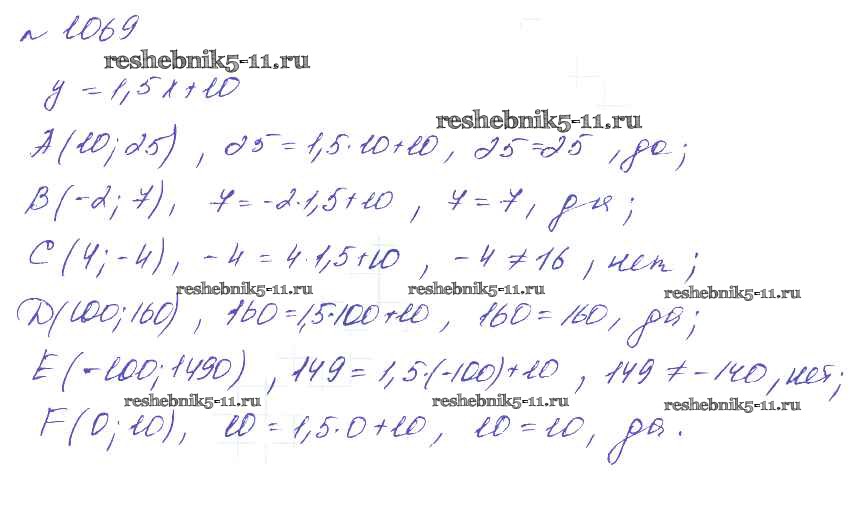 № 1069
reshebnik5-11.ru
y = 1,5x+10
reshebnik5-11.ru
A(10; 25) , 25 = 1,5·10+10, 25=25 , да;
B(-2; 7), 7 = -2·1,5+10 , 7 = 7, да;
C(4; -4), -4 = 4·1,5+10 , -4 ≠ 16 , нет;
reshebnik5-11.ru reshebnik5-11.ru reshebnik5-11.ru
D(100; 160) , 160 = 1,5·100+10 , 160 = 160, да;
E(-100; 1490) , 149 = 1,5·(-100)+10 , 149 ≠ -140, нет;
reshebnik5-11.ru reshebnik5-11.ru reshebnik5-11.ru
F(0; 10), 10 = 1,5·0+10, 10 = 10, да.